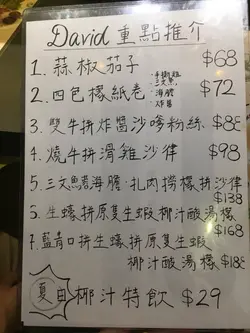 David 重點推介
1. 蒜椒茄子 $68
2. 四包檬紙卷 $72
海膽
炸蔗
3. 雙牛拼炸醬沙嗲粉絲 $88
4. 燒牛拼滑雞沙律 $98
5. 三文魚海膽·扎肉撈檬拼沙律
$138
6. 生蠔拼原隻生蝦椰汁酸湯檬
$168
7. 藍青口拼生蠔拼原隻生蝦
椰汁酸湯檬 $188
夏日椰汁特飲 $29